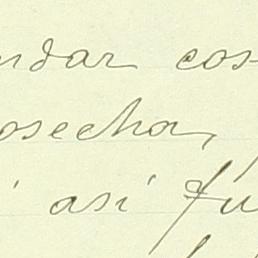 ndar cos-
osecha,
i así fu